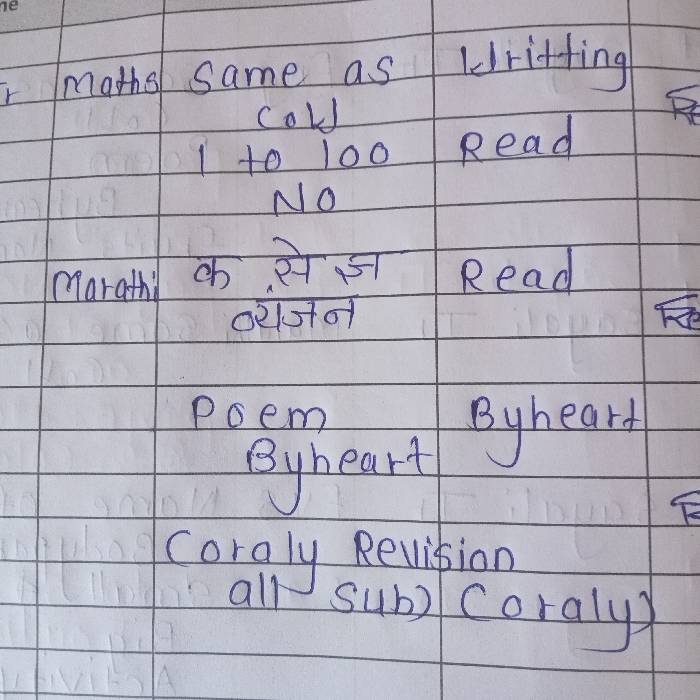 ne
Maths same as Writting
COW
1 to 100 Read
NO
Marathi क से ज्ञ Read
व्यंजन
Poem Byheart
Byheart
Coraly Revision
all sub) (Coraly)